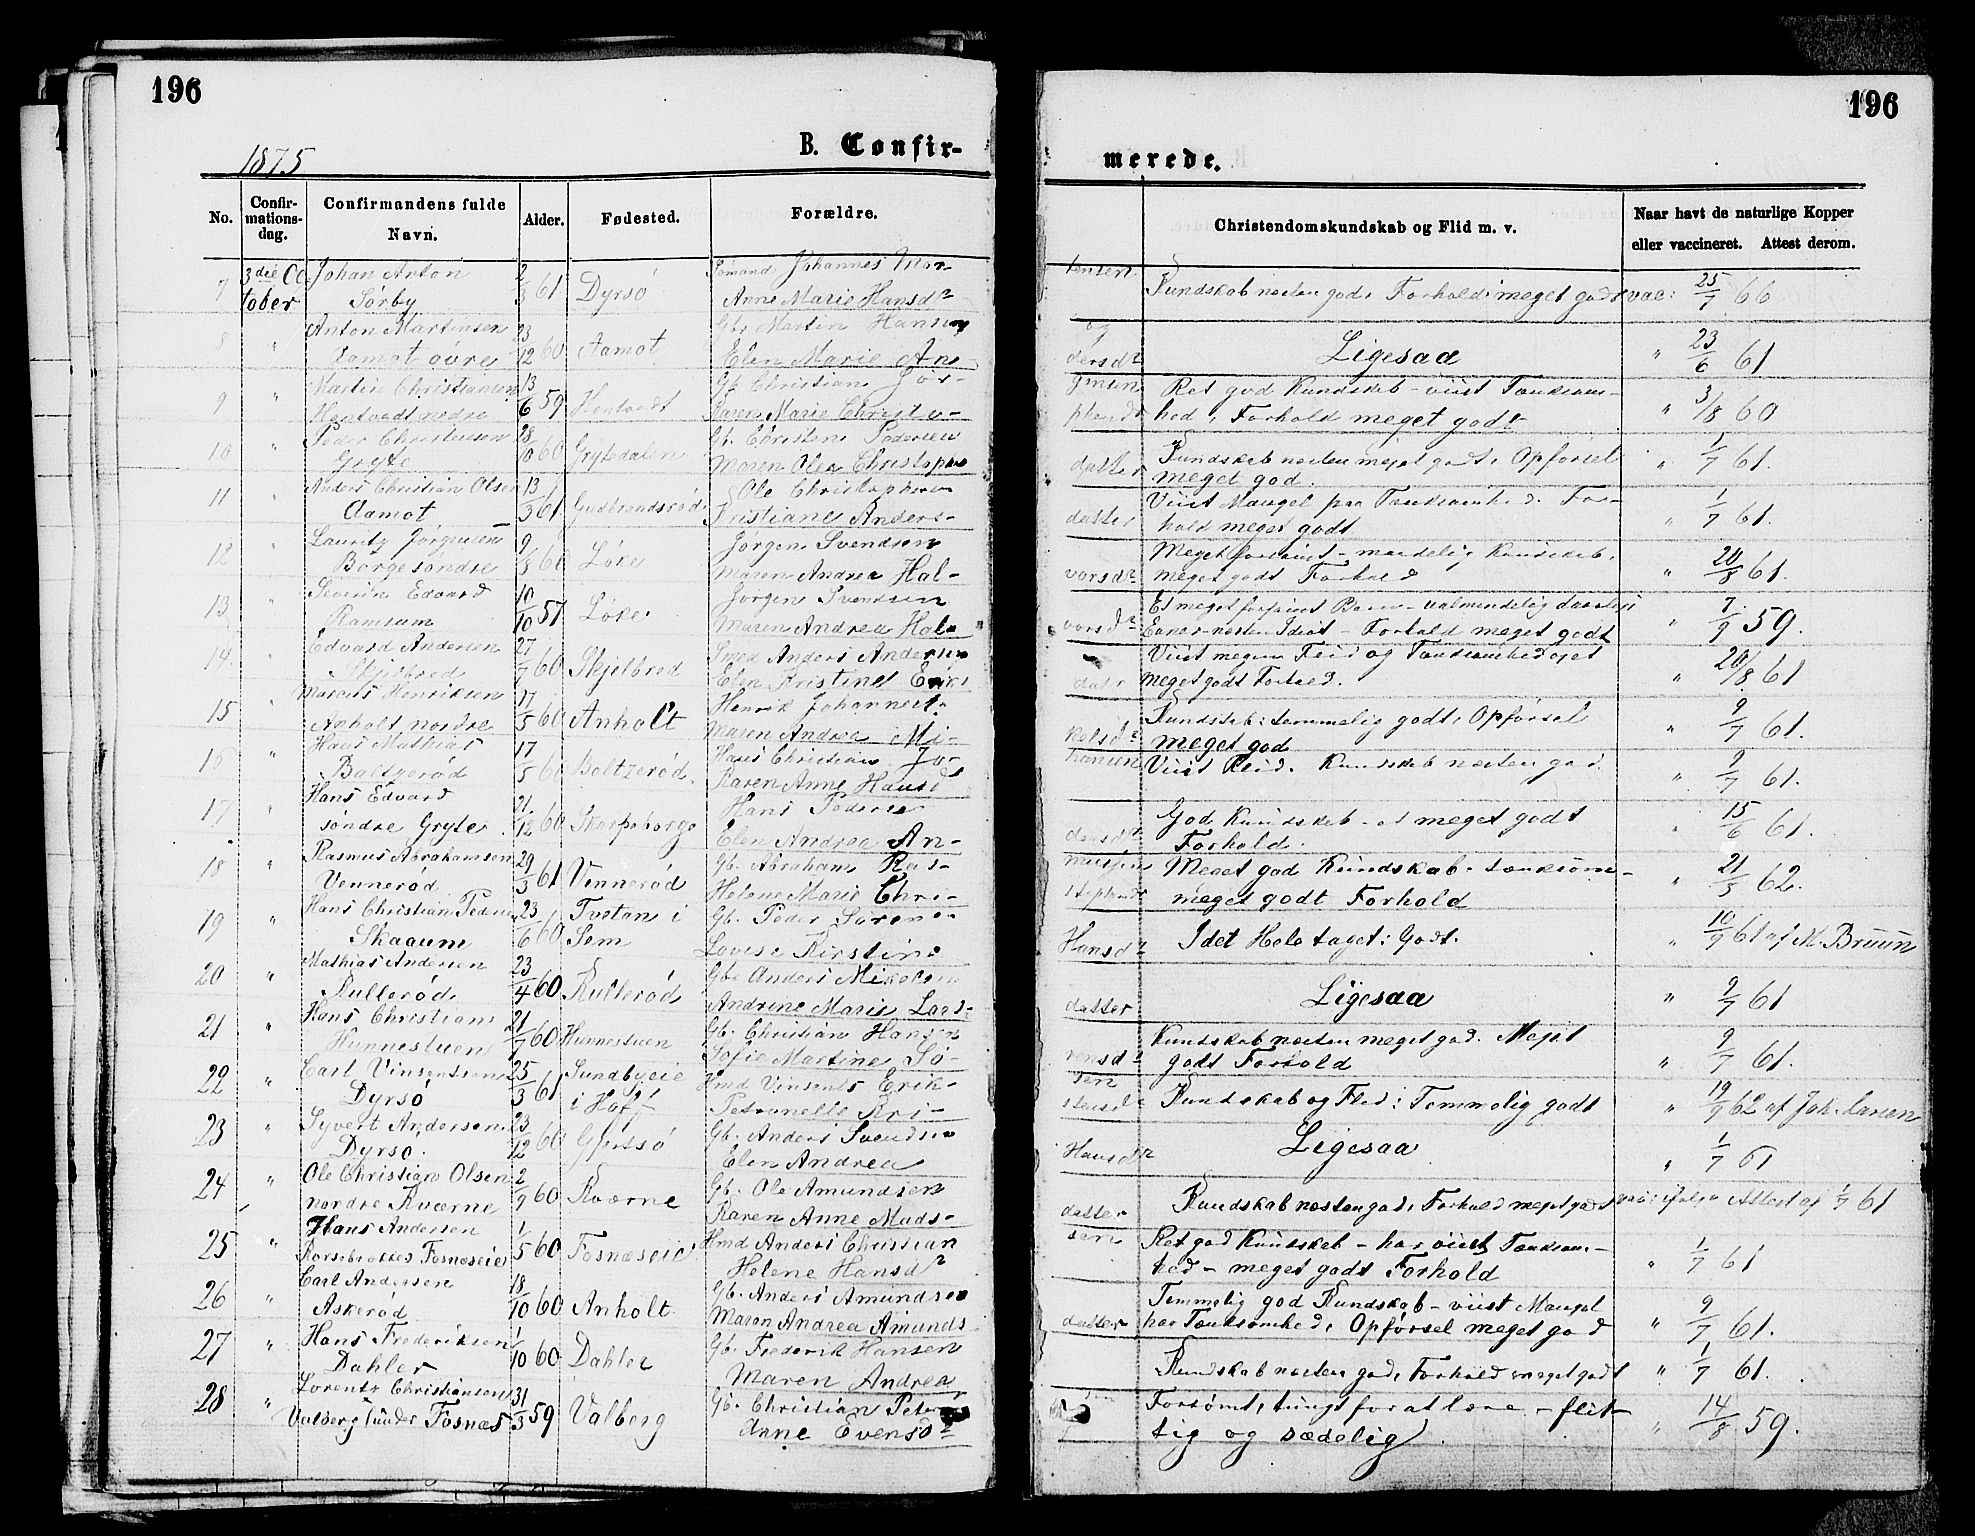 196
196
B. Confir-
merede.
1875
No.
Confir-
mations-
dag.
Confirmandens fulde
Navn.
Alder.
Fødested.
Forældre.
Christendomskundskab og Flid m. v.
Naar havt de naturlige Kopper
eller vaccineret. Attest derom.
7 3die Oc- Johan Anton 2/3 61 Dyrsö Sömand Johannes Mor- tensen
tober Sörby Anne Marie Hansdr
Kundskab næsten god, Forhold meget godt vac: 25/7 66
8 " Anton Martinsen 23/12 60 Aamot Gb. Martin Hansen og
Aamot övre Elen Marie An- dersdr
Ligesaa " 23/6 61
9 " Martin Christiansen 13/6 59 Hentvedt Gb. Christian Jör- gensen
Hentvedt nedre Karen Marie Christo-
Ret god Kundskab - viist Tænksom-
hed, Forhold meget godt " 3/8 60
10 Peder Christensen 28/10 60 Grytedalen Gb. Christen Pedersen
Gryte Maren Olea Christophers datter
Kundskab næsten meget godt, Opförsel
meget god. " 1/7 61.
11 " Anders Christian Olsen 13/3 61 Gudbrandsröd Ole Christophersen
Aamot Kristiane Anders- datter
Viist Mangel paa Tænksomhed. For-
hold meget godt " 1/7 61.
12 " Lauritz Jörgensen 9/8 60 Löke Jörgen Svendsen
Borge söndre Maren Andrea Hal- vorsdr
Meget forsömt - maadelig Kundskab,
meget godt Forhold " 20/8 61.
13 " Severin Edvard 10/10 57 Löke Jörgen Svendsen
Ramsum Maren Andrea Hal- vorsdr
Et meget forsömt Barn - ualmindelig daarlige
Evner næsten Idiot - Forhold meget godt " 7/9 59.
14 Edvard Andersen 27/7 60 Skjelbred Smed Anders Andersen
Skjelbred Elen Kristine Eriks datr
Viist megen Flid og Tænksomhed
meget godt Forhold. " 20/8 61
15 " Marcus Henriksen 17/5 60 Anholt Henrik Johannes
Anholt nordre Maren Andrea Mi- kelsdr
Kundskab: temmelig godt, Opförsel
meget god " 9/7 61.
16 " Hans Mathias 17/5 60 Boltzeröd Hans Christian Jo- hansen
Baltzeröd Karen Anne Hansd
Viist Flid. Kundskab næsten god. " 9/7 61.
17 " Hans Edvard 21/12 60 Skorpeborge Hans Pedersen
söndre Gryte Elen Andrea An- dersdr
God Kundskab - et meget godt
Forhold. " 15/6 61.
18 " Rasmus Abrahamsen 29/3 61 Venneröd Gb. Abraham Ras- mussen
Venneröd Helene Marie Chri-
Meget god Kundskab, tænksom -
meget godt Forhold " 21/5 62.
19 " Hans Christian Peder 23/6 60 Tvetan i Gb. Peder Sören
Skaaum Sem Lovise Kirstine Hansdr
I det Hele taget: Godt. " 10/9 61 af M. Bruun
20 " Mathias Andersen 23/4 60 Rulleröd Gb. Anders Mikelsen
Rulleröd Andrine Marie Lars- datter
Ligesaa " 9/7 61
21 " Hans Christian 21/7 60 Hunnestuen Gb. Christian Hansen
Hunnestuen Sofie Martine Sö- rensdr
Kundskab næsten meget god. Meget
godt Forhold " 9/7 61.
22 " Carl Vinsentsen 25/3 61 Sundbyeie Hmd Vinsents Erik- sen
Dyrsö i Hoff Petronelle Kri-
Kundskab og Flid: Temmelig godt " 19/9 62 af Joh. Larsen
23 " Syvert Andersen 23/12 60 Gjertsö Gb. Anders Svendsen
Dyrsö. Elen Andrea Hansdr
Ligesaa " 1/7 61
24 " Ole Christian Olsen 2/9 60 Kværne Gb. Ole Amundsen
nordre Kværne Karen Anne Mads- datter
Kundskab næsten god, Forhold meget godt vac: ifölge Attest af 1/7 61
25 " Hans Andersen 1/5 60 Fosnæseie Hmd Anders Christian sen
Korsebrekke Fosnæseie Helene Hansdr
Ret god Kundskab - har viist Tænksom-
hed - meget godt Forhold " 1/7 61
26 " Carl Andersen 18/10 60 Anholt Gb. Anders Amundsen
Askeröd Maren Andrea Amunds datter
Temmelig god Kundskab - viist Mangel
paa Tænksomhed, Opförsel meget god " 9/7 61.
27 " Hans Frederiksen 1/10 60 Dahler Gb. Frederik Hansen
Dahler Maren Andrea
Kundskab næsten god, Forhold meget godt " 1/7 61.
28 " Lorentz Christiansen 31/3 59 Valberg Gb. Christian Peter
Valberg under Fosnæs Anne Evensdr
Forsömt, tungt for at lære - flit-
tig og sædelig " 14/8 59.